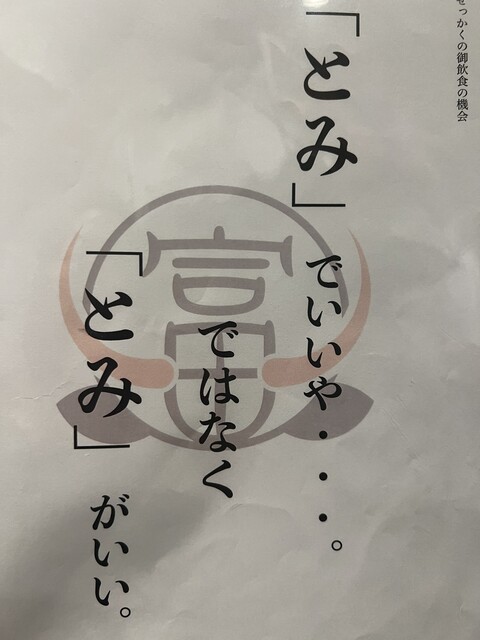 せっかくの御飲食の機会
「とみ」でいいや・・・。
ではなく
「とみ」がいい。
富